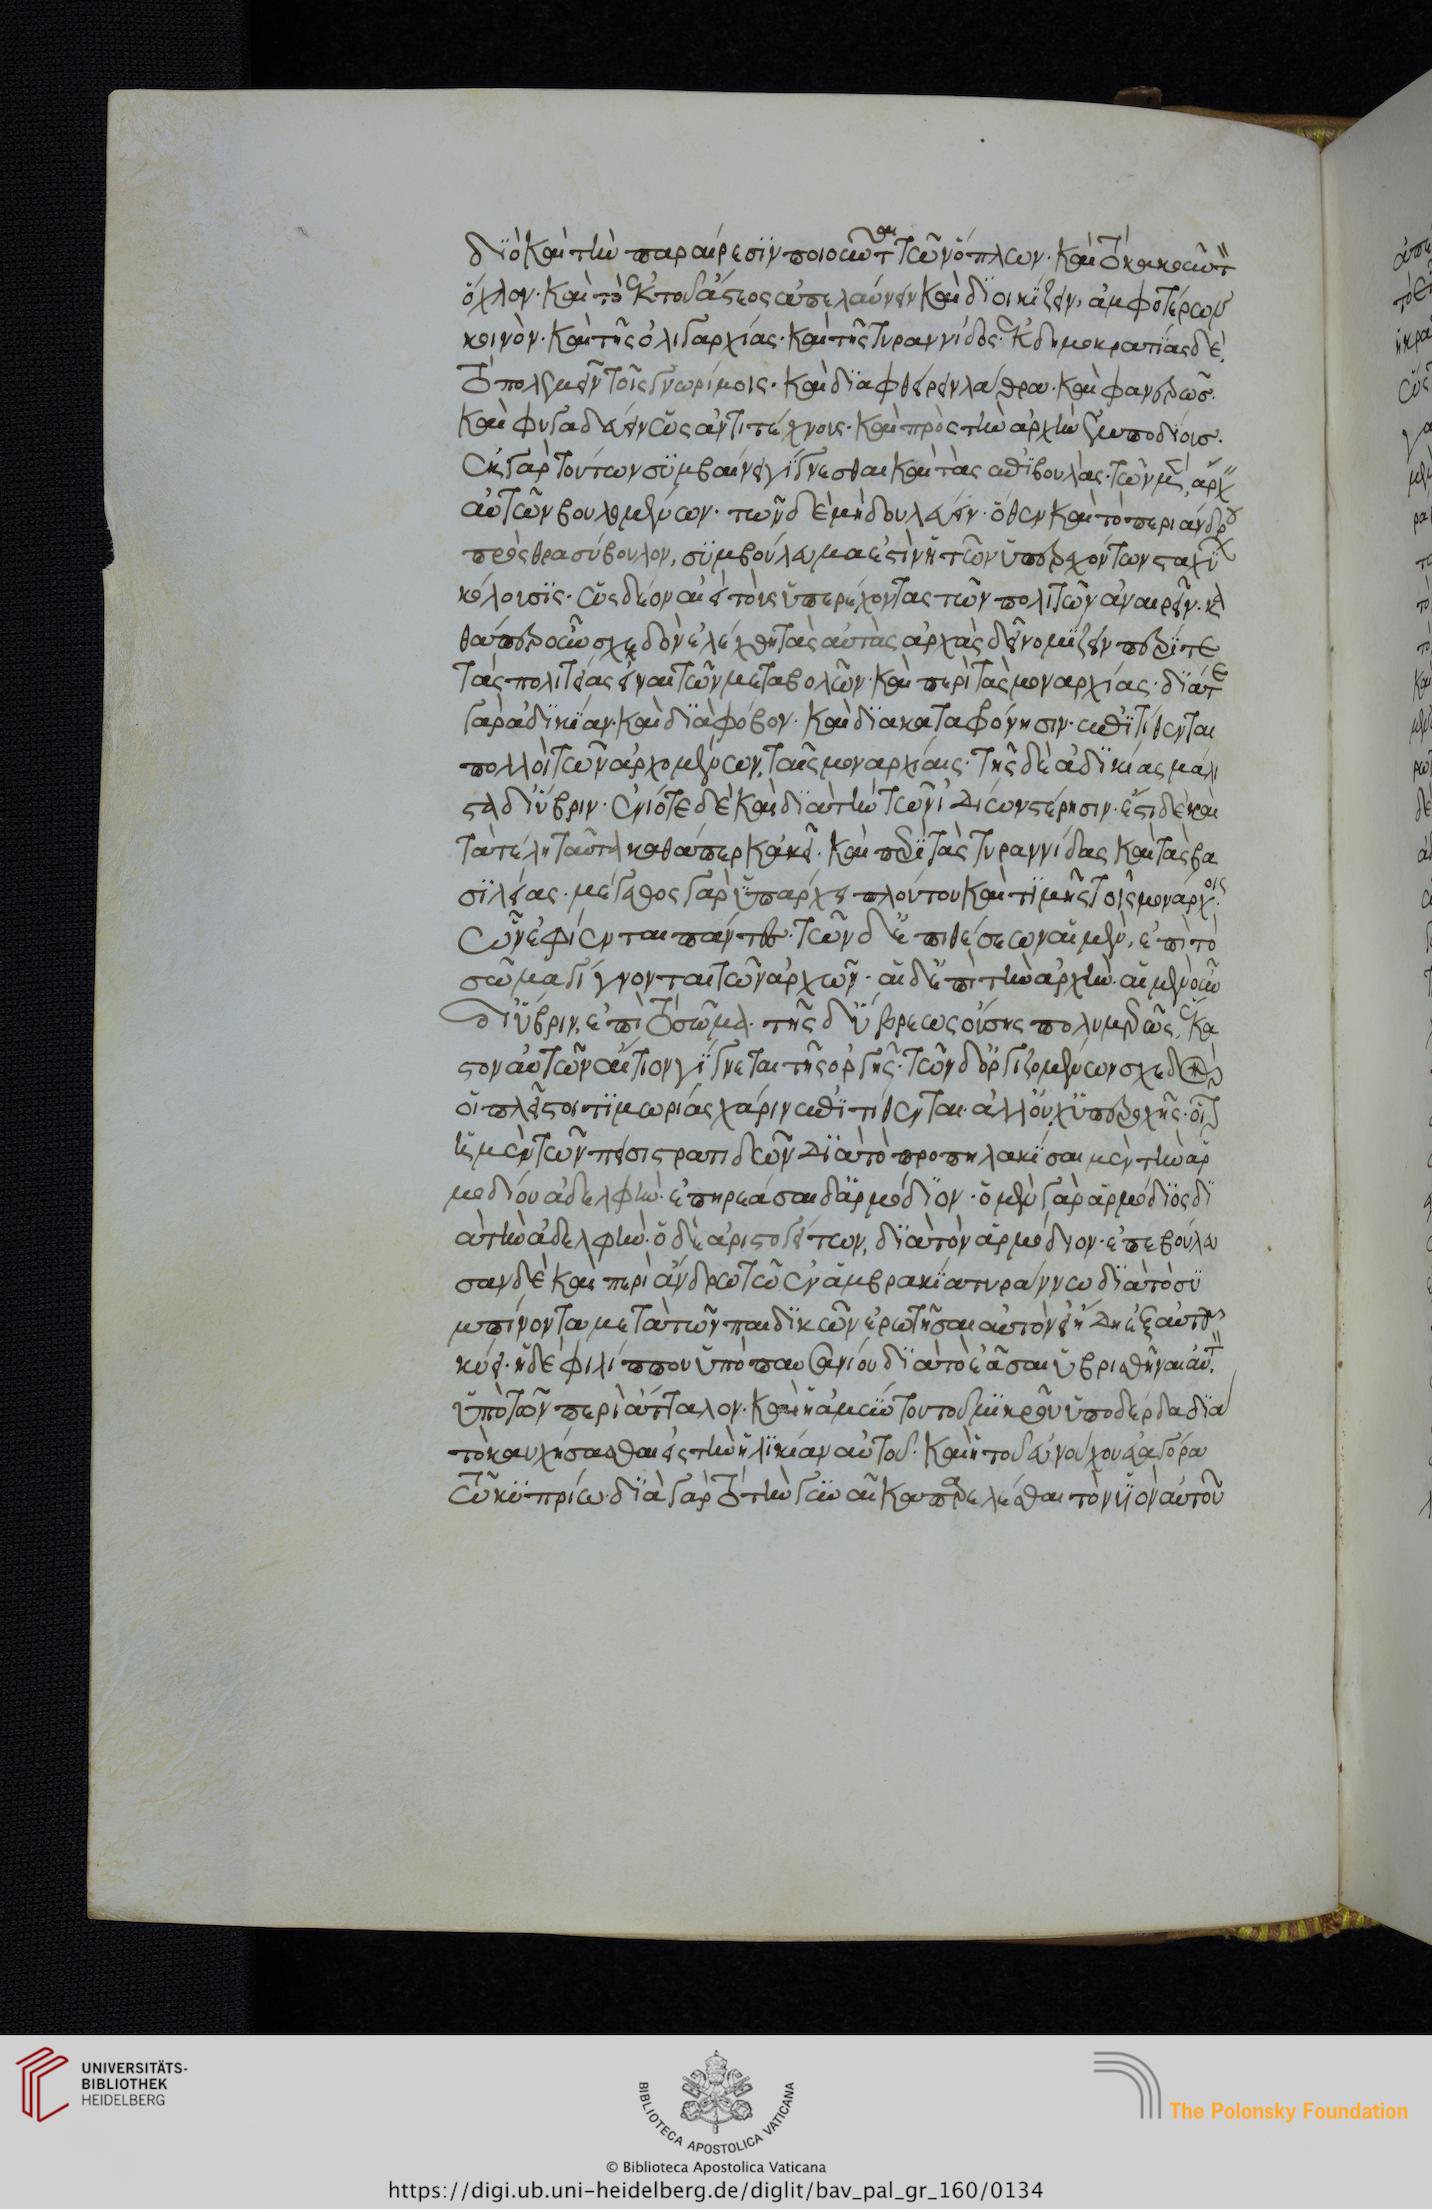 διὸ καὶ τὴν παραίρεσιν ποιοῦνται τῶν ὅπλων· καὶ τὸ κακοῦν τὸν
ὄχλον· καὶ τὸ ἐκ τοῦ ἄστεος ἀπελαύνειν καὶ διοικίζειν, ἀμφοτέρων
κοινὸν· καὶ τῆς ὀλιγαρχίας· καὶ τῆς τυραννίδος· ἐκ δημοκρατίας δὲ,
τὸ πολεμεῖν τοῖς γνωρίμοις· καὶ διαφθείρειν λάθρα· καὶ φανερῶς·
καὶ φυγαδεύειν ὡς ἀντιτέχνους· καὶ πρὸς τὴν ἀρχὴν ἐμποδίους·
ἐκ γὰρ τούτων συμβαίνει γίγνεσθαι καὶ τὰς ἐπιβουλάς· τῶν μὲν, ἄρχειν
αὐτῶν βουλομένων· τῶν δὲ μὴ δουλεύειν· ὅθεν καὶ τὸ περιάνδρου
πρὸς θρασύβουλον, συμβούλευμα ἐστὶν ἡ τῶν ὑπερεχόντων σταχύων
κόλουσις· ὡς δέον αἰεὶ τοὺς ὑπερέχοντας τῶν πολιτῶν ἀναιρεῖν· κα
θάπερ οὖν σχεδὸν ἐλέχθη τὰς αὐτὰς ἀρχὰς δεῖ νομίζειν περί τε
τὰς πολιτείας εἶναι τῶν μεταβολῶν· καὶ περὶ τὰς μοναρχίας· διά τε
γὰρ ἀδικίαν· καὶ διὰ φόβον· καὶ διὰ καταφρόνησιν· ἐπιτίθενται
πολλοὶ τῶν ἀρχομένων, ταῖς μοναρχίαις· τῆς δὲ ἀδικίας μάλι
στα δι' ὕβριν· ἐνιότε δὲ καὶ διὰ τὴν τῶν ἰδίων στέρησιν· ἔστι δὲ καὶ
τὰ τέλη ταῦτα καθάπερ κἀκεῖ· καὶ περὶ τὰς τυραννίδας καὶ τὰς βα
σιλείας· μέγεθος γὰρ ὑπάρχει πλούτου καὶ τιμῆς τοῖς μονάρχοις·
ὧν ἐφίενται πάντες· τῶν δ' ἐπιθέσεων αἱ μὲν, ἐπὶ τὸ
σῶμα γίγνονται τῶν ἀρχῶν· αἱ δ' ἐπὶ τὴν ἀρχήν· αἱ μὲν οὖν
δι' ὕβριν, ἐπὶ τὸ σῶμα· τῆς δ' ὕβρεως οὔσης πολυμεροῦς, ἕκα
στον αὐτῶν αἴτιον γίγνεται τῆς ὀργῆς· τῶν δ' ὀργιζομένων σχεδὸν
οἱ πλεῖστοι τιμωρίας χάριν ἐπιτίθενται· ἀλλ' οὐχ ὑπεροχῆς· οἷον
ἡ μὲν τῶν πεισιστρατιδῶν διὰ τὸ προπηλακίσαι μὲν τὴν ἁρ
μοδίου ἀδελφήν· ἐπηρεάσαι δ' ἁρμόδιον· ὁ μὲν γὰρ ἁρμόδιος δι
ὰ τὴν ἀδελφήν· ὁ δὲ ἀριστογείτων, διὰ τὸν ἁρμόδιον· ἐπεβούλευ
σαν δὲ καὶ περιάνδρῳ τῷ ἐν ἀμβρακίᾳ τυράννῳ διὰ τὸ συ
μπίνοντα μετὰ τῶν παιδικῶν ἐρωτῆσαι αὐτὸν εἰ ἤδη ἐξ αὐτοῦ
κύει· ἡ δὲ φιλίππου ὑπὸ παυσανίου διὰ τὸ ἐᾶσαι ὑβρισθῆναι αὐτὸν
ὑπὸ τῶν περὶ ἄτταλον· καὶ ἡ ἀμύντου τοῦ μικροῦ ὑπὸ δέρδα διὰ
τὸ καυχήσασθαι εἰς τὴν ἡλικίαν αὐτοῦ· καὶ ἡ τοῦ εὐνούχου εὐαγόρᾳ
τῷ κυπρίῳ· διὰ γὰρ τὸ τὴν γυναῖκα παρελέσθαι τὸν υἱὸν αὐτοῦ
UNIVERSITÄTS-
BIBLIOTHEK
HEIDELBERG
BIBLIOTECA APOSTOLICA VATICANA
The Polonsky Foundation
© Biblioteca Apostolica Vaticana
https://digi.ub.uni-heidelberg.de/diglit/bav_pal_gr_160/0134